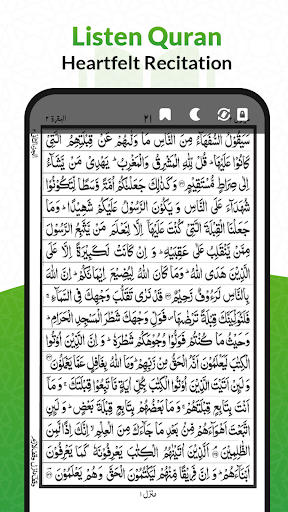 Listen Quran
Heartfelt Recitation
البقرة ٢
٢١
سَيَقُوْلُ السُّفَهَآءُ مِنَ النَّاسِ مَا وَلّٰىهُمْ عَنْ قِبْلَتِهِمُ الَّتِیْ
كَانُوْا عَلَیْهَا ؕ قُلْ لِّلّٰهِ الْمَشْرِقُ وَالْمَغْرِبُ ؕ یَهْدِیْ مَنْ یَّشَآءُ
اِلٰی صِرَاطٍ مُّسْتَقِیْمٍ ۝ وَكَذٰلِكَ جَعَلْنٰكُمْ اُمَّةً وَّسَطًا لِّتَكُوْنُوْا
شُهَدَآءَ عَلَی النَّاسِ وَیَكُوْنَ الرَّسُوْلُ عَلَیْكُمْ شَهِیْدًا ؕ وَمَا
جَعَلْنَا الْقِبْلَةَ الَّتِیْ كُنْتَ عَلَیْهَاۤ اِلَّا لِنَعْلَمَ مَنْ یَّتَّبِعُ الرَّسُوْلَ
مِمَّنْ یَّنْقَلِبُ عَلٰی عَقِبَیْهِ ؕ وَاِنْ كَانَتْ لَكَبِیْرَةً اِلَّا عَلَی
الَّذِیْنَ هَدَی اللّٰهُ ؕ وَمَا كَانَ اللّٰهُ لِیُضِیْعَ اِیْمَانَكُمْ ؕ اِنَّ اللّٰهَ
بِالنَّاسِ لَرَءُوْفٌ رَّحِیْمٌ ۝ قَدْ نَرٰی تَقَلُّبَ وَجْهِكَ فِی السَّمَآءِ ۚ
فَلَنُوَلِّیَنَّكَ قِبْلَةً تَرْضٰىهَا ۪ فَوَلِّ وَجْهَكَ شَطْرَ الْمَسْجِدِ الْحَرَامِ ؕ
وَحَیْثُ مَا كُنْتُمْ فَوَلُّوْا وُجُوْهَكُمْ شَطْرَهٗ ؕ وَاِنَّ الَّذِیْنَ اُوْتُوا
الْكِتٰبَ لَیَعْلَمُوْنَ اَنَّهُ الْحَقُّ مِنْ رَّبِّهِمْ ؕ وَمَا اللّٰهُ بِغَافِلٍ عَمَّا یَعْمَلُوْنَ ۝
وَلَىِٕنْ اَتَیْتَ الَّذِیْنَ اُوْتُوا الْكِتٰبَ بِكُلِّ اٰیَةٍ مَّا تَبِعُوْا قِبْلَتَكَ ۚ وَمَاۤ
اَنْتَ بِتَابِعٍ قِبْلَتَهُمْ ۚ وَمَا بَعْضُهُمْ بِتَابِعٍ قِبْلَةَ بَعْضٍ ؕ وَلَىِٕنِ
اتَّبَعْتَ اَهْوَآءَهُمْ مِّنْۢ بَعْدِ مَا جَآءَكَ مِنَ الْعِلْمِ ۙ اِنَّكَ اِذًا لَّمِنَ
الظّٰلِمِیْنَ ۝ اَلَّذِیْنَ اٰتَیْنٰهُمُ الْكِتٰبَ یَعْرِفُوْنَهٗ كَمَا یَعْرِفُوْنَ
اَبْنَآءَهُمْ ؕ وَاِنَّ فَرِیْقًا مِّنْهُمْ لَیَكْتُمُوْنَ الْحَقَّ وَهُمْ یَعْلَمُوْنَ ۝
منزل ١